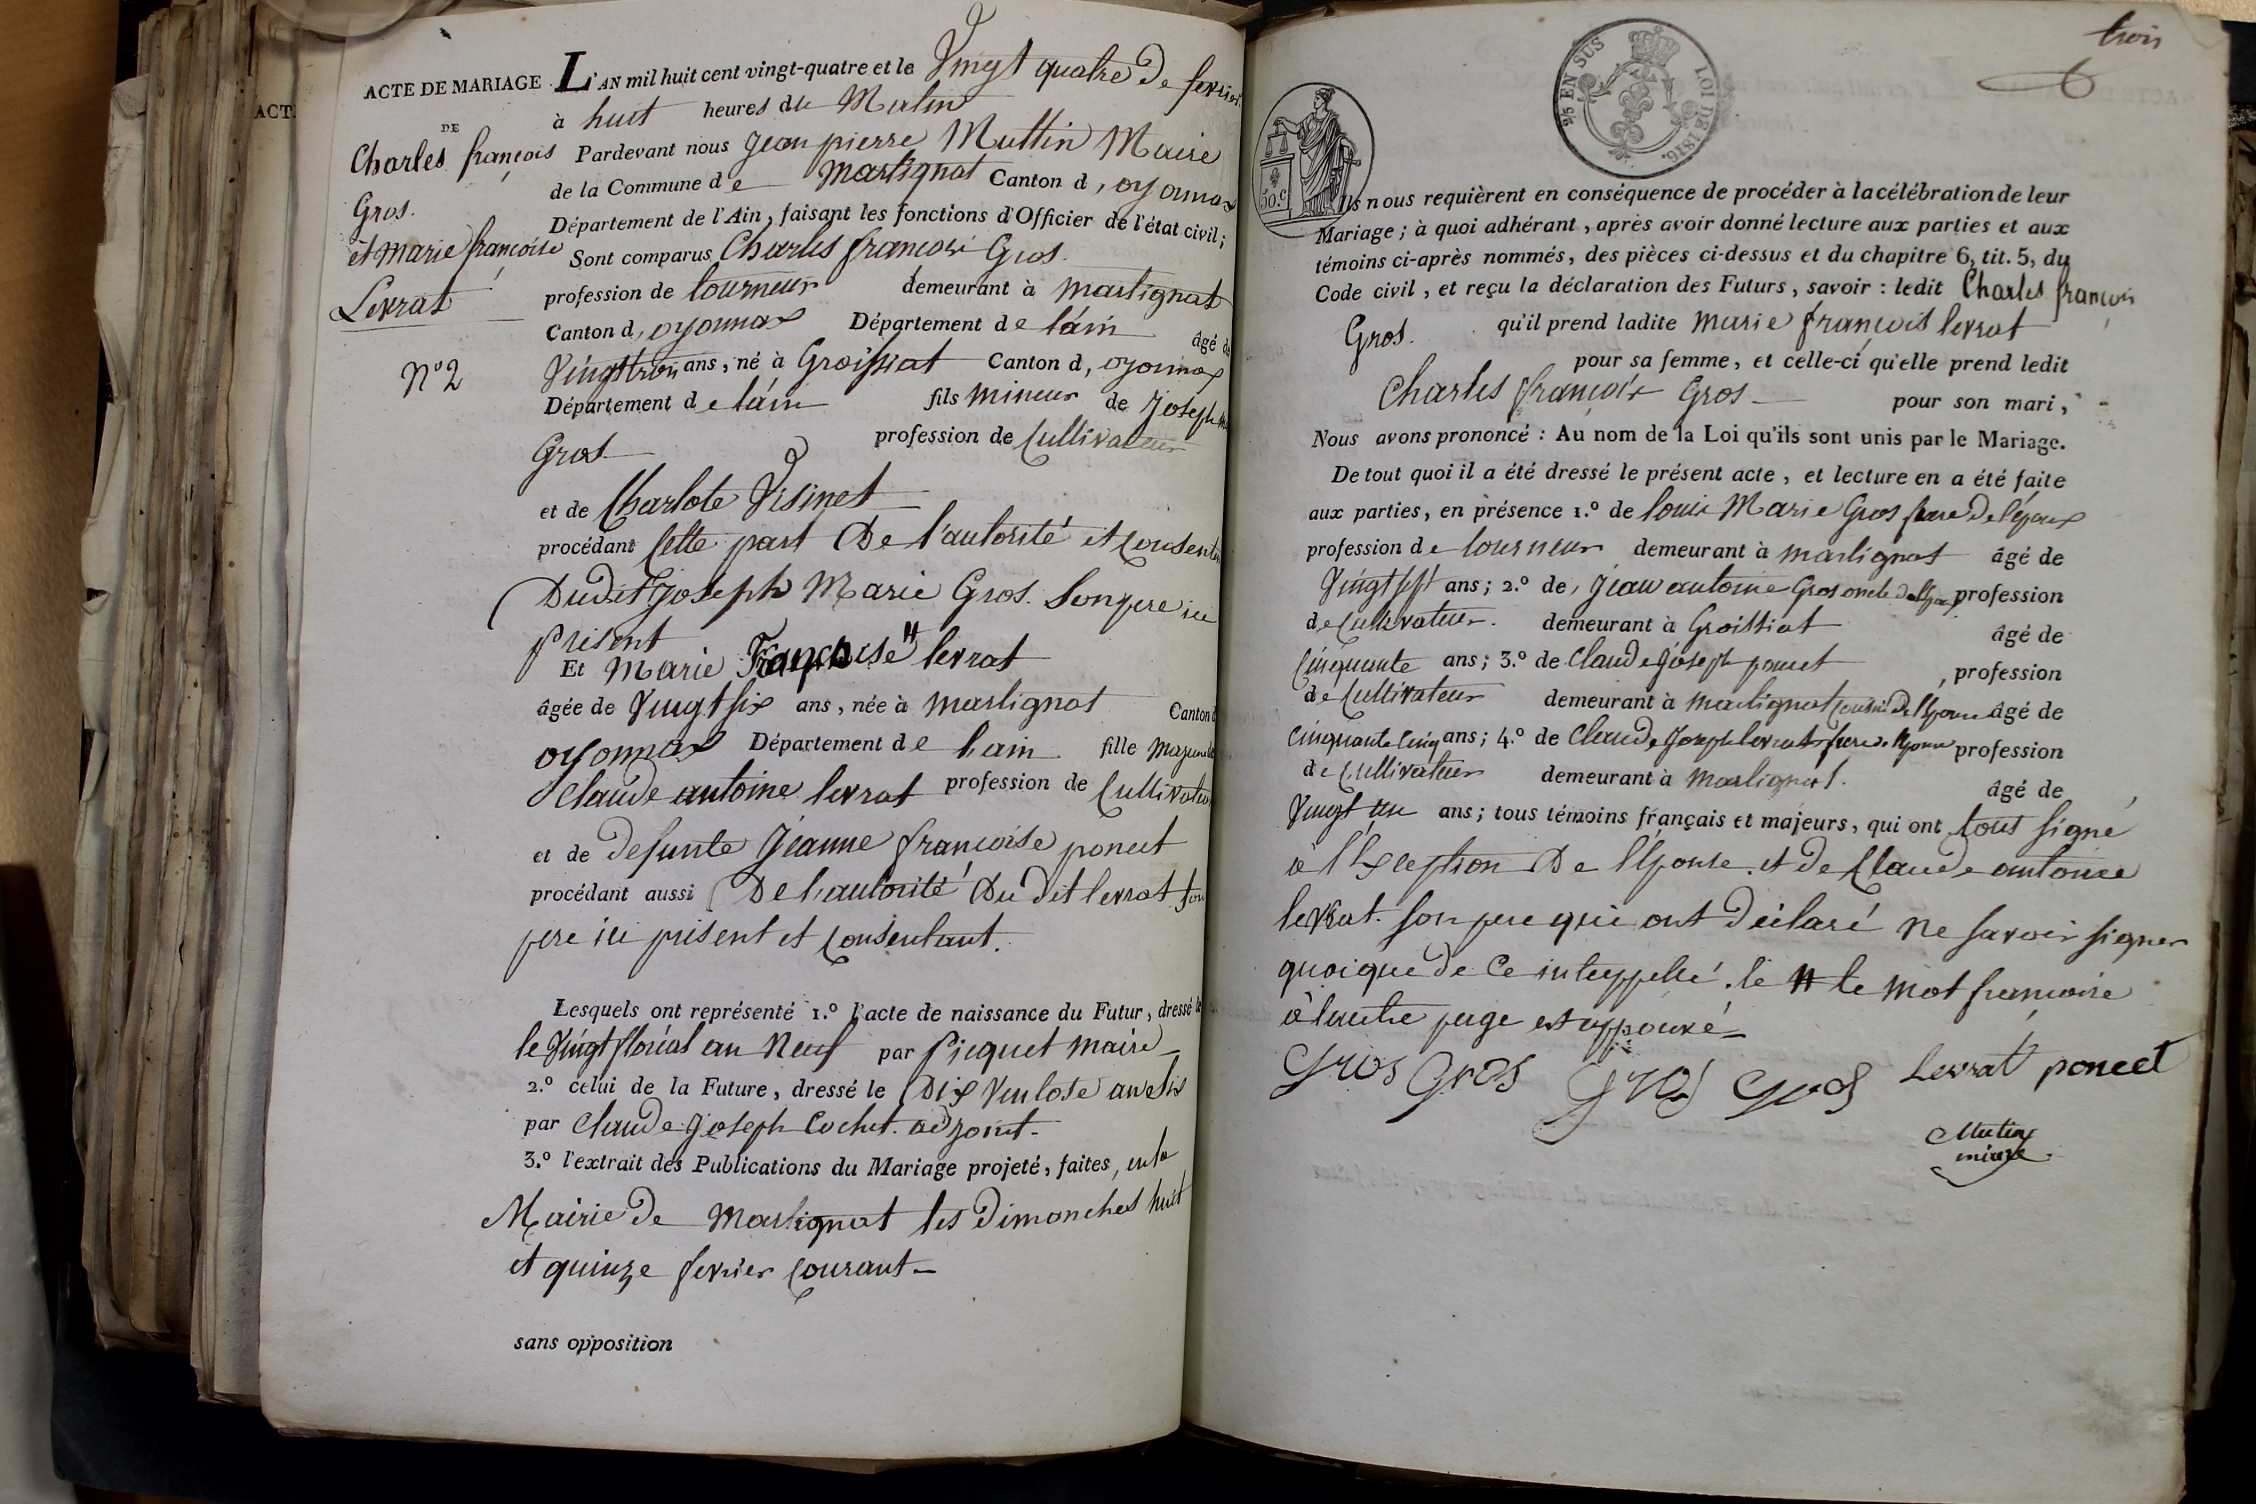 ACT
ACTE DE MARIAGE
DE
Charles françois
Gros.
et marie françoise
Levrat
N° 2
L'AN mil huit cent vingt-quatre et le Vingt quatre de fevrier
à huit heures du Matin
Pardevant nous jean pierre Muttin Maire
de la Commune de Martignat Canton d, oyonnax
Département de l'Ain, faisant les fonctions d'Officier de l'état civil;
Sont comparus Charles francois Gros.
profession de tourneur demeurant à martignat
Canton d, oyonnax Département de láin âgé de
Vingttrois ans, né à Groissiat Canton d, oyonnax
Département de láin fils mineur de joseph
Gros profession de Cultivateur
et de Charlote Visinet
procédant Cette part De l'autorité et Consentem
Dudit joseph Marie Gros. Son pere ici
présent
Et Marie Françoise # levrat
âgée de Vingt six ans, née à martignat Canton d
oyonnax Département de lain fille majeure de
Claude antoine levrat profession de Cultivateur
et de defunte jeanne francoise poncet
procédant aussi De l'autorité Du dit levrat son
pere ici présent et Consentant.
Lesquels ont représenté 1.° l'acte de naissance du Futur, dressé le
le Vingt floréal an Neuf par picquet maire
2.° celui de la Future, dressé le Dix Ventose an six
par Claude joseph Cochet adjoint.
3.° l'extrait des Publications du Mariage projeté, faites, en la
Mairie de Martignat les dimanches huit
et quinze fevrier Courant
sans opposition
trois
25 EN SUS LOI DE 1816.
50.C
Ils nous requièrent en conséquence de procéder à la célébration de leur
Mariage; à quoi adhérant, après avoir donné lecture aux parties et aux
témoins ci-après nommés, des pièces ci-dessus et du chapitre 6, tit. 5, du
Code civil, et reçu la déclaration des Futurs, savoir : ledit Charles françois
Gros. qu'il prend ladite marie françois levrat
pour sa femme, et celle-ci qu'elle prend ledit
Charles françois Gros pour son mari,
Nous avons prononcé : Au nom de la Loi qu'ils sont unis par le Mariage.
De tout quoi il a été dressé le présent acte, et lecture en a été faite
aux parties, en présence 1.° de louis Marie Gros frere De l'époux
profession de tourneur demeurant à martignat âgé de
Vingt sept ans; 2.° de, jean antoine Gros oncle de l'époux profession
de Cultivateur. demeurant à Groissiat âgé de
Cinquante ans; 3.° de Claude joseph poncet, profession
de Cultivateur demeurant à martignat Cousin De l'épouse âgé de
Cinquante Cinq ans; 4.° de Claude joseph levrat frere de l'épouse profession
de Cultivateur demeurant à martignat. âgé de
Vingt un ans; tous témoins français et majeurs, qui ont tous signé
à l'Exception De l'Epouse. et de Claude antoine
levrat. son pere qui ont Déclaré Ne savoir signer
quoique de Ce interppellé. le # le mot francoise
à lautre page est approuvé
Gros Gros Gros Gros Levrat poncet
Mutin
maire